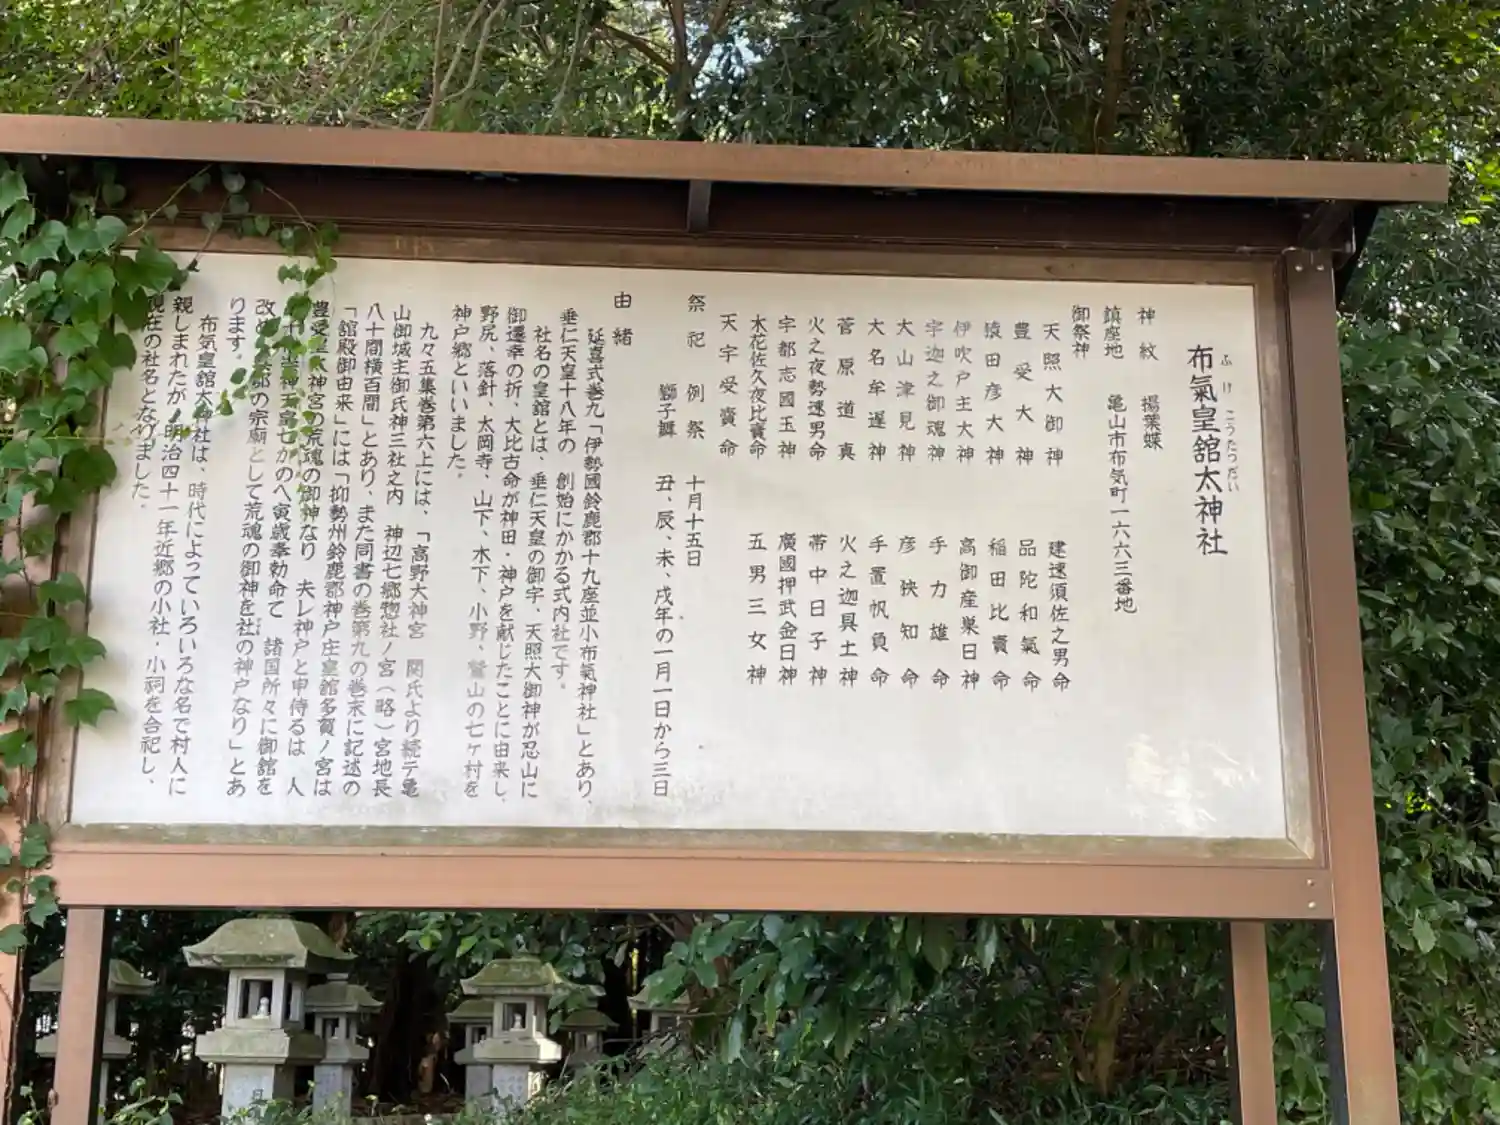 布氣皇舘太神社
ふけ こうたつだい
神紋 揚葉蝶
鎮座地 亀山市布気町一六六三番地
御祭神
天照大御神 建速須佐之男命
豊受大神 品陀和氣命
猿田彦大神 稲田比賣命
伊吹戸主大神 高御産巣日神
宇迦之御魂神 手力雄命
大山津見神 彦狭知命
大名牟遅神 手置帆負命
菅原道真 火之迦具土神
火之夜勢速男命 帯中日子神
宇都志國玉神 廣國押武金日神
木花佐久夜比賣命 五男三女神
天宇受賣命
祭祀 例祭 十月十五日
獅子舞 丑、辰、未、戌年の一月一日から三日
由緒
延喜式巻九「伊勢國鈴鹿郡十九座並小布氣神社」とあり、
垂仁天皇十八年の 創始にかかる式内社です。
社名の皇舘とは、垂仁天皇の御宇、天照大御神が忍山に
御遷幸の折、大比古命が神田・神戸を献じたことに由来し、
野尻、落針、太岡寺、山下、木下、小野、鷲山の七ヶ村を
神戸郷といいました。
九々五集巻第六上には、「高野大神宮 関氏より続テ亀
山御城主御氏神三社之内 神辺七郷惣社ノ宮(略)宮地長
八十間横百間」とあり、また同書の巻第九の巻末に記述の
「舘殿御由来」には「抑勢州鈴鹿郡神戸庄皇舘多賀ノ宮は
豊受皇大神宮の荒魂の御神なり 夫レ神戸と申侍るは 人
十 崇神天皇七かのへ寅歳奉勅命て 諸国所々に御舘を
改め 郡の宗廟として荒魂の御神を社の神戸なり」とあ
ります。
布気皇舘太神社は、時代によっていろいろな名で村人に
親しまれたが、明治四十一年近郷の小社・小祠を合祀し、
現在の社名となりました。